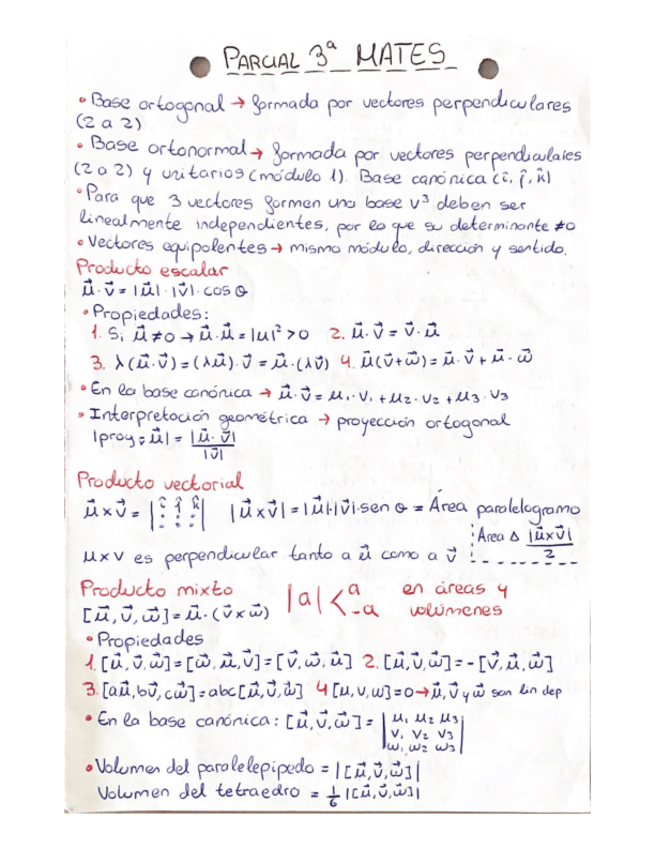 • PARCIAL 3ª MATES •
• Base ortogonal → formada por vectores perpendiculares
(2 a 2)
• Base ortonormal → formada por vectores perpendiculares
(2 a 2) y unitarios (módulo 1). Base canónica (î, ĵ, k̂)
• Para que 3 vectores formen una base V³ deben ser
linealmente independientes, por lo que su determinante ≠0
• Vectores equipolentes → mismo módulo, dirección y sentido.
Producto escalar
u⃗·v⃗ = |u⃗|·|v⃗|·cos θ
• Propiedades:
1. Si u⃗≠0 → u⃗·u⃗=|u|²>0 2. u⃗·v⃗ = v⃗·u⃗
3. λ(u⃗·v⃗)=(λu⃗)·v⃗=u⃗·(λv⃗) 4. u⃗(v⃗+w⃗)=u⃗·v⃗+u⃗·w⃗
• En la base canónica → u⃗·v⃗= u₁·v₁+u₂·v₂+u₃·v₃
• Interpretación geométrica → proyección ortogonal
|proy v⃗ u⃗| = |u⃗·v⃗| / |v⃗|
Producto vectorial
u⃗×v⃗ = |î ĵ k̂| |u⃗×v⃗|=|u⃗|·|v⃗|·sen θ = Área paralelogramo
Área Δ |u⃗×v⃗| / 2
u×v es perpendicular tanto a u⃗ como a v⃗
Producto mixto
[u⃗,v⃗,w⃗]=u⃗·(v⃗×w⃗)
|a|< a -a en áreas y
volúmenes
• Propiedades
1. [u⃗,v⃗,w⃗]=[w⃗,u⃗,v⃗]=[v⃗,w⃗,u⃗] 2. [u⃗,v⃗,w⃗]=-[v⃗,u⃗,w⃗]
3. [au⃗,bv⃗,cw⃗]=abc[u⃗,v⃗,w⃗] 4 [u,v,w]=0→u⃗,v⃗ y w⃗ son lin dep
• En la base canónica: [u⃗,v⃗,w⃗] = |u₁ u₂ u₃|
|v₁ v₂ v₃|
|w₁ w₂ w₃|
• Volumen del paralelepípedo = |[u⃗,v⃗,w⃗]|
Volumen del tetraedro = 1/6 |[u⃗,v⃗,w⃗]|